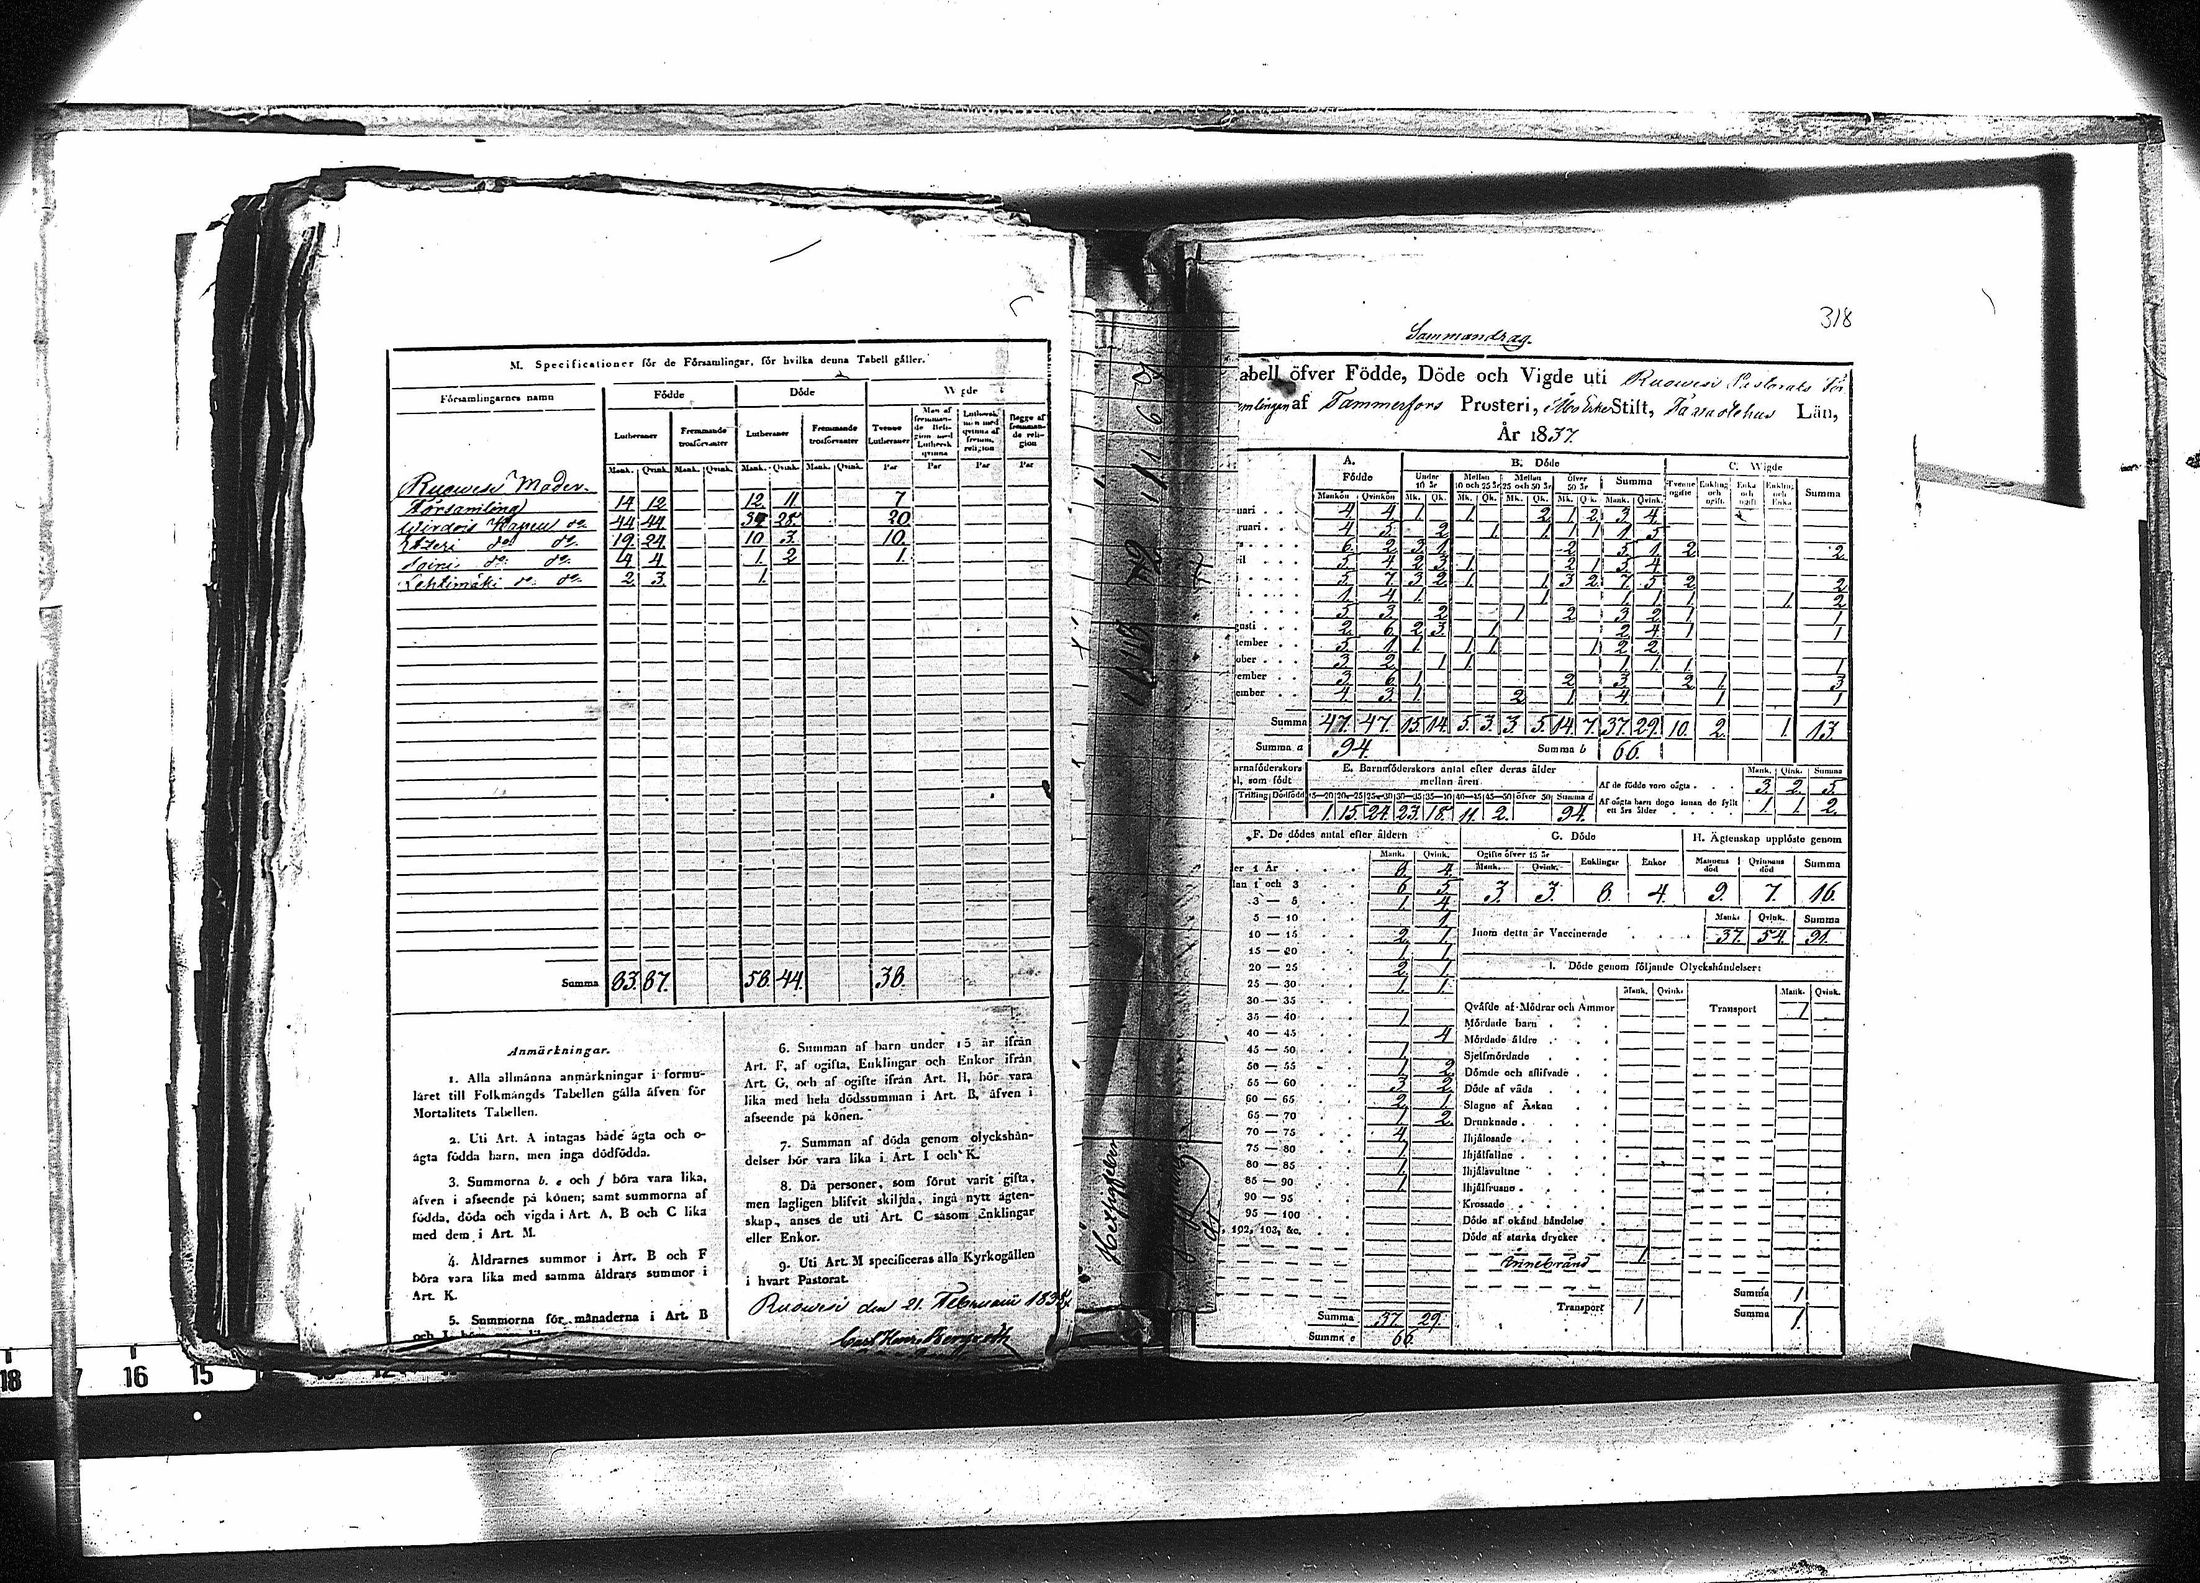 M. Specificationer för de Församlingar, för hvilka denna Tabell gäller.
Församlingarnes namn
Födde
Döde
Wigde
Lutheraner
Fremmande trosförvanter
Lutheraner
Fremmande trosförvanter
Tvenne Lutheraner
Man af fremmande Religion med Luthersk qvinna
Luthersk man med qvinna af fremm. religion
Begge af fremmande religion
Mank. Qvink. Mank. Qvink. Mank. Qvink. Mank. Qvink. Par Par Par Par
Ruowesi Moder-
Församling 14 12 12 11 7
Wirdois Kapell do 44 44 28 20
Etzeri do do 19 24 10 3 10
Soini do do 4 4 1 2 1
Lehtimäki do do 2 3 1
Summa 83. 87. 58. 44. 38.
Anmärkningar.
1. Alla allmänna anmärkningar i formu-
läret till Folkmängds Tabellen gälla äfven för
Mortalitets Tabellen.
2. Uti Art. A intagas både ägta och o-
ägta födda barn, men inga dödfödda.
3. Summorna b. e och f böra vara lika,
äfven i afseende på könen; samt summorna af
födda, döda och vigda i Art. A, B och C lika
med dem i Art. M.
4. Åldrarnes summor i Art. B och F
böra vara lika med samma åldrars summor i
Art. K.
5. Summorna för månaderna i Art. B
6. Summan af barn under 15 år ifrån
Art. F, af ogifta, Enklingar och Enkor ifrån
Art. G, och af ogifte ifrån Art. H, bör vara
lika med hela dödssumman i Art. B, äfven i
afseende på könen.
7. Summan af döda genom olyckshän-
delser bör vara lika i Art. I och K.
8. Då personer, som förut varit gifta,
men lagligen blifvit skiljda, ingå nytt ägten-
skap, anses de uti Art. C såsom Enklingar
eller Enkor.
9. Uti Art. M specificeras alla Kyrkogällen
i hvart Pastorat.
Ruowesi den 21. Februarii
318
Sammandrag.
abell öfver Födde, Döde och Vigde uti Ruowesi Pastorats För
mlingen af Tammerfors Prosteri, Åbo Erke Stift, Tavastehus Län,
År 1837.
A. Födde
B. Döde
C. Wigde
Under 10 år
Mellan 10 och 25 år
Mellan 25 och 50 år
öfver 50 år
Summa
Tvenne ogifte
Enkling och ogift
Enka och ogift
Enkling och Enka
Summa
Mankön Qvinkön Mk. Qk. Mk. Qk. Mk. Qk. Mk. Qk. Mank. Qvink.
uari 4 4 1 1 2 1 2 3 4
ruari 4 5 2 1 1 1 1 1 5
6 2 3 1 2 5 1 2 2
il 5 4 2 3 1 2 1 5 4
5 7 3 2 1 1 3 2 7 5 2 2
1 4 1 1 1 1 1 1 2
5 3 2 1 2 3 2 1 1
gusti 2 6 2 3 1 2 4 1 1
tember 5 1 1 1 1 1 2 2
ober 3 2 1 1 1 1 1 1
vember 3 6 1 2 3 2 1 3
ember 4 3 1 2 1 4 1 1
Summa 47. 47. 15. 14. 5. 3. 3. 5. 14. 7. 37. 29. 10. 2. 1. 13.
Summa a 94. Summa b 66.
arnaföderskors
l, som födt
E. Barnaföderskors antal efter deras ålder
mellan åren
Trilling Dödfödd 15—20 20—25 25—30 30—35 35—40 40—45 45—50 öfver 50 Summa d
1. 15. 24. 23. 18. 11. 2. 94.
Mank. Qink. Summa
Af de födde voro oägta 3. 2. 5.
Af oägta barn dogo innan de fyllt
ett års ålder 1. 1. 2.
F. De dödes antal efter åldern
Mank. Qvink.
der 1 År 8 4
lan 1 och 3 6 5
3 — 5 1 4
5 — 10 1
10 — 15 2 1
15 — 20 1 1
20 — 25 2 1
25 — 30 1 1
30 — 35
35 — 40 1
40 — 45 4
45 — 50 1
50 — 55 1 2
55 — 60 3 2
60 — 65 2 1
65 — 70 1 2
70 — 75 4
75 — 80 1
80 — 85 1
85 — 90 1
90 — 95
95 — 100
102, 103, &c.
Summa 37. 29.
Summa e 66.
G. Döde
Ogifte öfver 15 år
Enklingar
Enkor
Mank. Qvink.
3. 3. 8. 4.
H. Ägtenskap upplöste genom
Mannens död
Qvinnans död
Summa
9. 7. 16.
Mank. Qvink. Summa
Inom detta år Vaccinerade 37. 54. 91.
I. Döde genom följande Olyckshändelser:
Mank. Qvink. Mank. Qvink.
Qväfde af Mödrar och Ammor Transport 1
Mördade barn
Mördade äldre
Sjelfmördade
Dömde och aflifvade
Döde af våda
Slagne af Åskan
Drunknade
Ihjälosade
Ihjälfallne
Ihjälsvultne
Ihjälfrusne
Krossade
Döde af okänd händelse
Döde af starka drycker
Innebränd 1.
Transport 1
Summa 1
Summa 1.
18 16 15